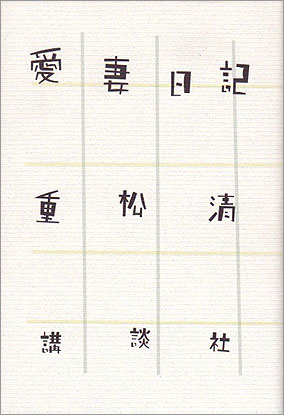 愛妻日記
重松清
講談社